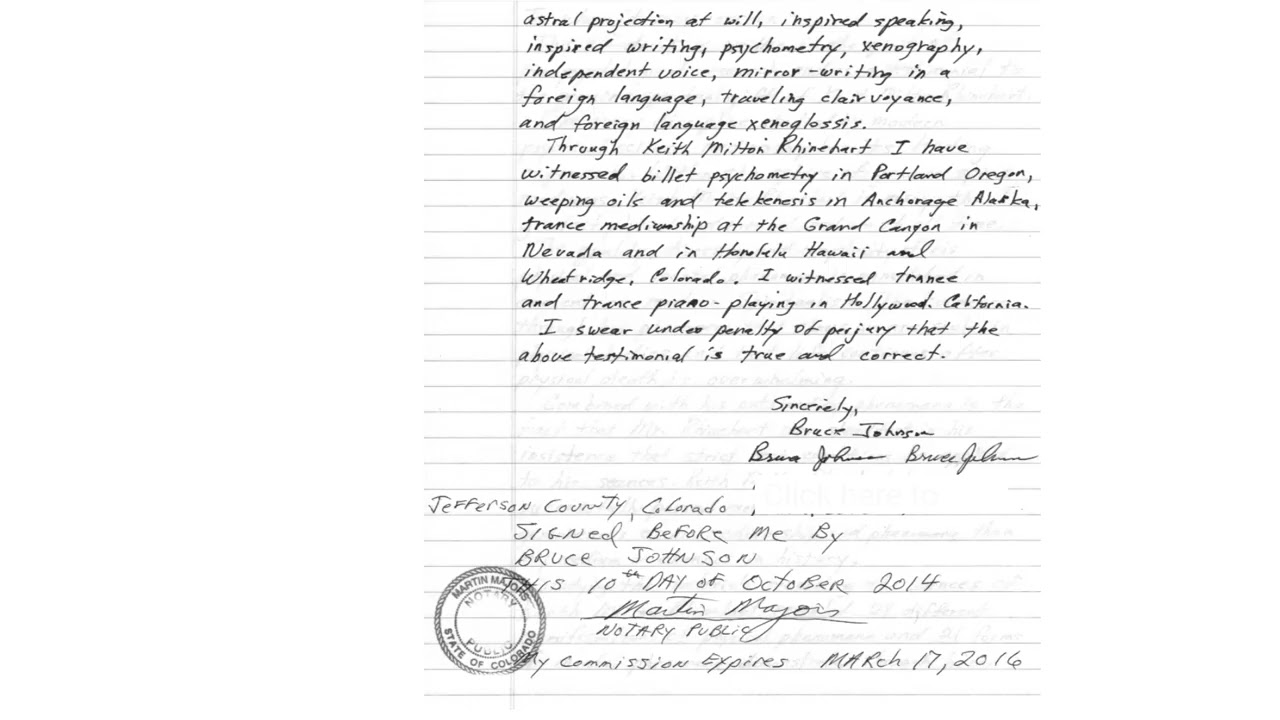 astral projection at will, inspired speaking,
inspired writing, psychometry, xenography,
independent voice, mirror-writing in a
foreign language, traveling clairvoyance,
and foreign language xenoglossis.
Through Keith Milton Rhinehart I have
witnessed billet psychometry in Portland Oregon,
weeping oils and telekenesis in Anchorage Alaska,
trance mediumship at the Grand Canyon in
Nevada and in Honolulu Hawaii and
Wheatridge, Colorado. I witnessed trance
and trance piano-playing in Hollywood, California.
I swear under penalty of perjury that the
above testimonial is true and correct.
physical death is overwhelming.
Sincerely,
Bruce Johnson
Bruce Johnson Bruce Johnson
Click here to
Jefferson County, Colorado
Signed Before Me By
Bruce Johnson
This 10th Day of October 2014
Martin Majors
Notary Public
My Commission Expires March 17, 2016
MARTIN MAJORS
NOTARY
PUBLIC
STATE OF COLORADO